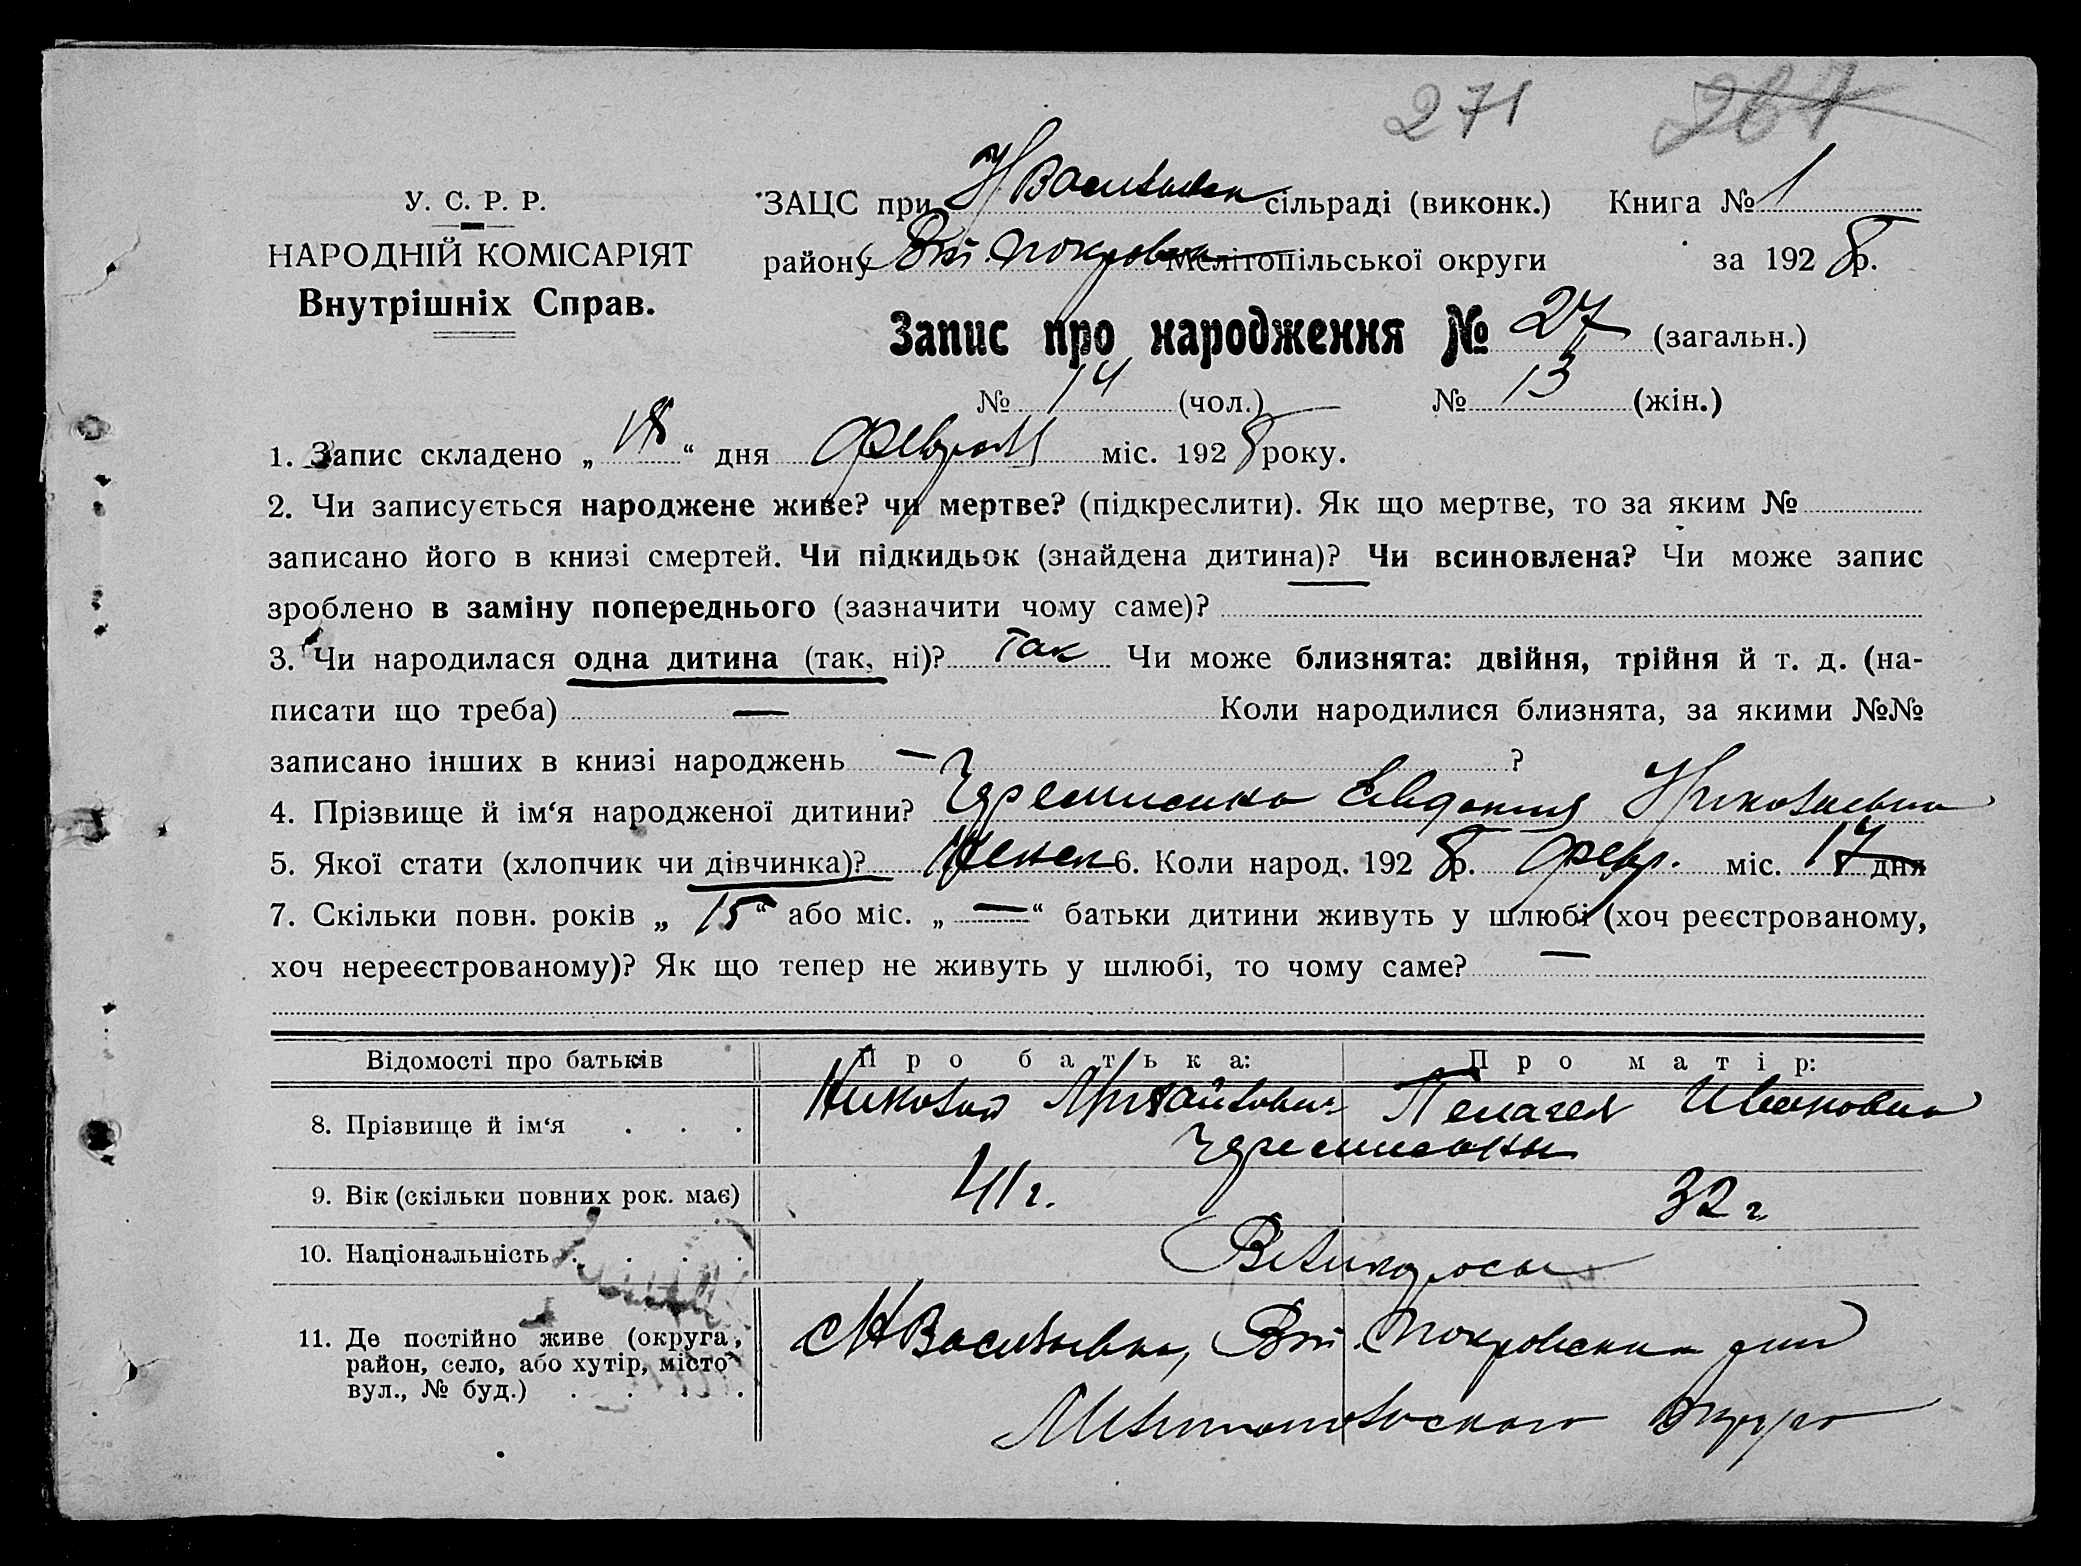 271 267
У. С. Р. Р.
НАРОДНІЙ КОМІСАРІЯТ
Внутрішніх Справ.
ЗАЦС при сільраді (виконк.) Книга № 1
району Покровка Мелітопільської округи за 1928 р.
Запис про народження № 27 (загальн.)
№ 14 (чол.) № 13 (жін.)
1. Запис складено „ 18 “ дня февраля міс. 1928 року.
2. Чи записується народжене живе? чи мертве? (підкреслити). Як що мертве, то за яким №
записано його в книзі смертей. Чи підкидьок (знайдена дитина)? Чи всиновлена? Чи може запис
зроблено в заміну попереднього (зазначити чому саме)?
3. Чи народилася одна дитина (так, ні)? Так Чи може близнята: двійня, трійня й т. д. (на-
писати що треба) — Коли народилися близнята, за якими №№
записано інших в книзі народжень — ?
4. Прізвище й ім‘я народженої дитини? Евдокия Николаевна
5. Якої стати (хлопчик чи дівчинка)? Женск 6. Коли народ. 1928 р. февр. міс. 17 дня
7. Скільки повн. років „ 15 “ або міс. „ — “ батьки дитини живуть у шлюбі (хоч реєстрованому,
хоч нереєстрованому)? Як що тепер не живуть у шлюбі, то чому саме? —
Відомості про батьків Про батька: Про матір:
8. Прізвище й ім‘я . . . Николай Михайлович Пелагея Ивановна
9. Вік (скільки повних рок. має) 41 г. 32 г.
10. Національність . . . . Великоросы
11. Де постійно живе (округа,
район, село, або хутір, місто
вул., № буд.) . . . .
Н Васильевка, Покровский
Мелитопольского округа